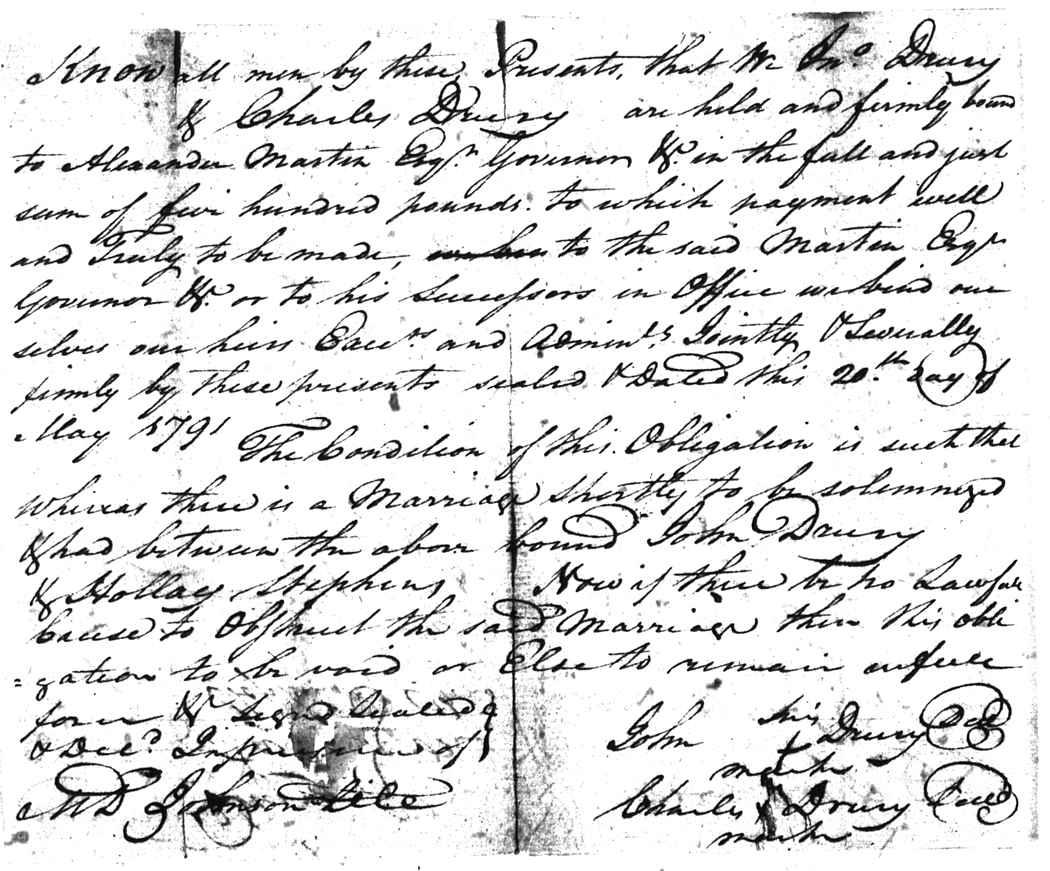 Know all men by these Presents, that We Jno Drury
& Charles Drury are held and firmly bound
to Alexander Martin Esqr Governor &c. in the full and just
sum of five hundred pounds. to which payment well
and Truly to be made, to the said Martin Esqr
Governor &c. or to his Successors in Office we bind our
selves our heirs Execrs and Admintrs Jointly & Severally
firmly by these presents sealed & Dated this 20th Day of
May 1791
The Condition of this Obligation is such that
Whereas there is a Marriage Shortly to be solemnized
& had between the above bound John Drury
& Hollay Stephens Now if there be no Lawfull
Cause to Obstruct the said Marriage then this obli
=gation to be void or Else to remain in full
force &c Signd Sealed
& Deld In presence of
John his Drury Seal
mark
Charles x Drury Seal
mark
Johnson